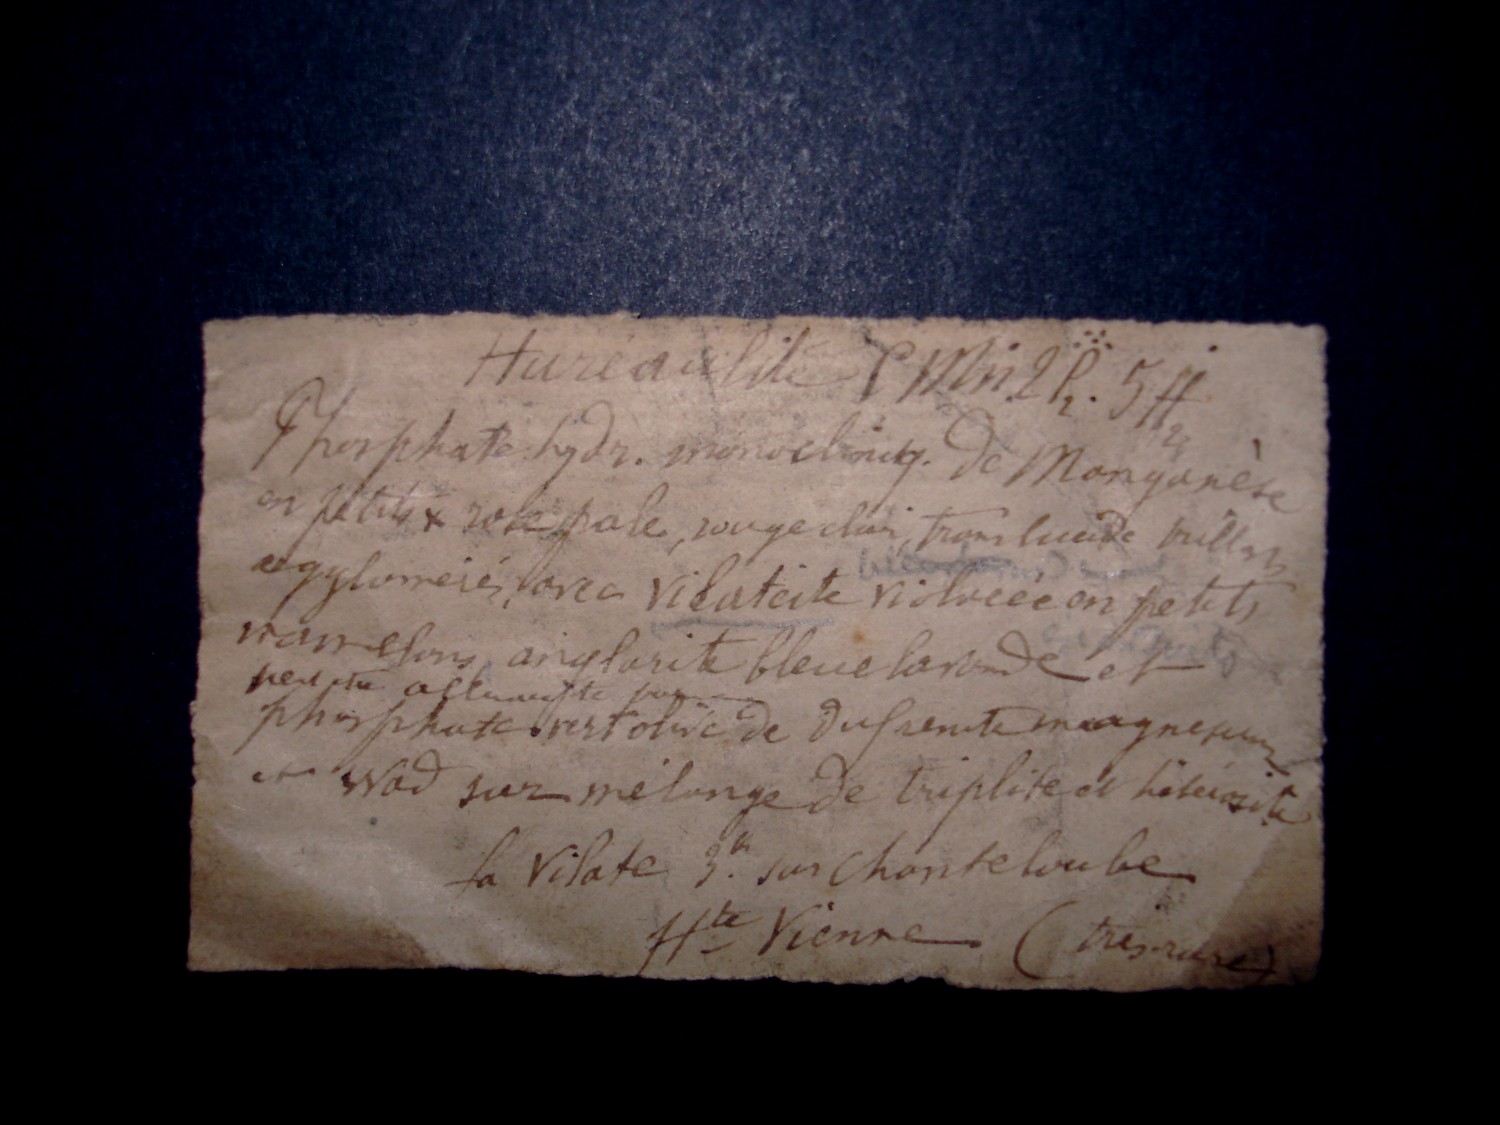 Huréaulite 5 Mn 2 P. 5 H
Phosphate hydr. monocliniq. de Manganèse
en petits x rose pale, rouge clair, translucide brillans
agglomerés, avec Vilateite violacée en petits
mamelons, anglarite bleue lavande et
phosphate vert olive de dufrenite magnesium
et Wad sur mélange de triplite et hétérosite
la Vilate 3. sur Chanteloube
Hte Vienne (très rare)